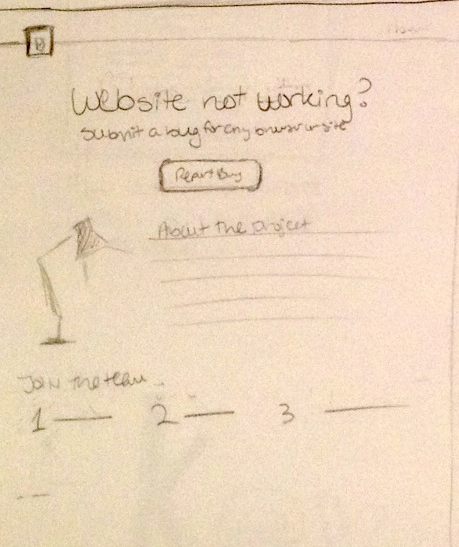 Website not working?
Submit a bug for any browser or site
Report Bug
About the project
Join the team...
1
2
3